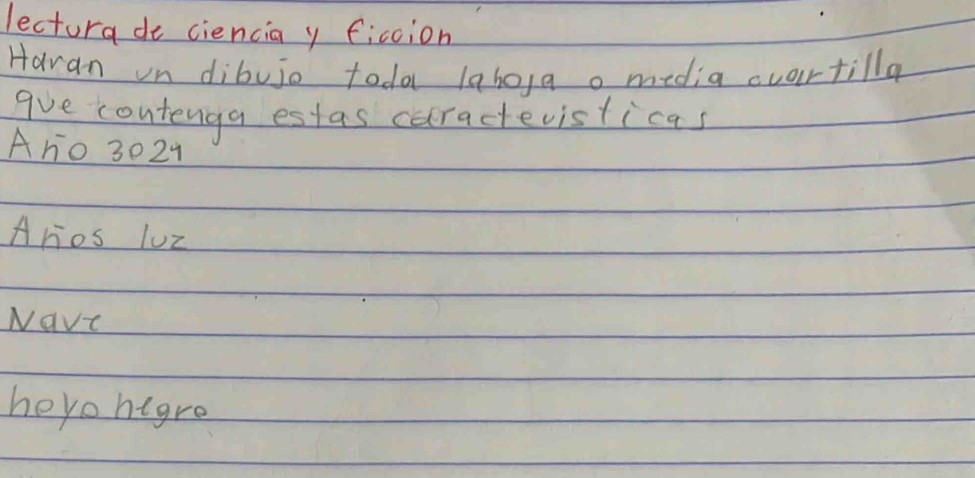 lectura de ciencia y ficcion
Haran un dibujo toda la hoja o media cuartilla
que contenga estas caracteristicas
Año 3024
Años luz
Nave
hoyo negro